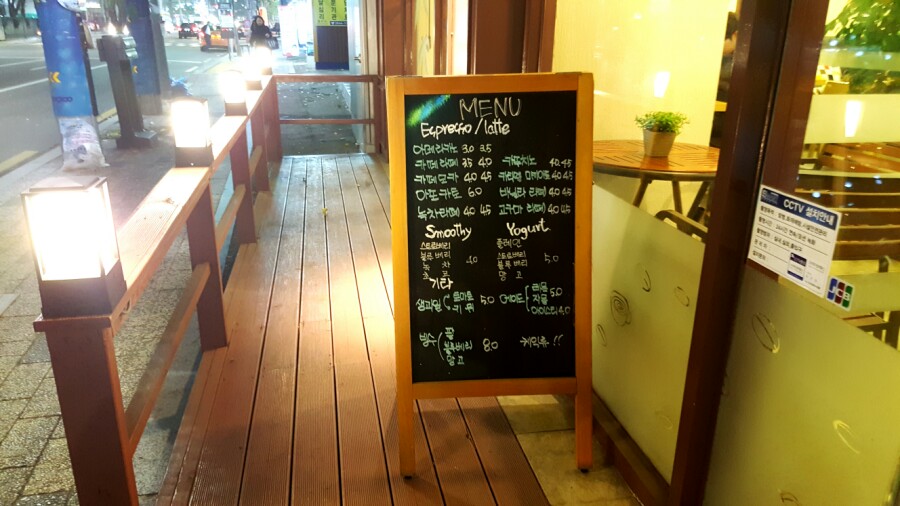 MENU
Espresso / latte
아메리카노 3.0 3.5
카페라떼 3.5 4.0
카페모카 4.0 4.5
아포카토 6.0
녹차라떼 4.0 4.5
카푸치노 4.0 4.5
카라멜 마끼아또 4.0 4.5
바닐라 라떼 4.0 4.5
고구마 라떼 4.0 4.5
Smoothy
스트로베리
블루베리
녹차
초코
4.0
Yogurt
플레인
스트로베리
블루베리
망고
5.0
기타
생과일
토마토
키위
5.0
에이드
레몬
자몽
5.0
아이스티 4.0
빙수
팥
블루베리
망고
8.0
CCTV 설치안내
JCB